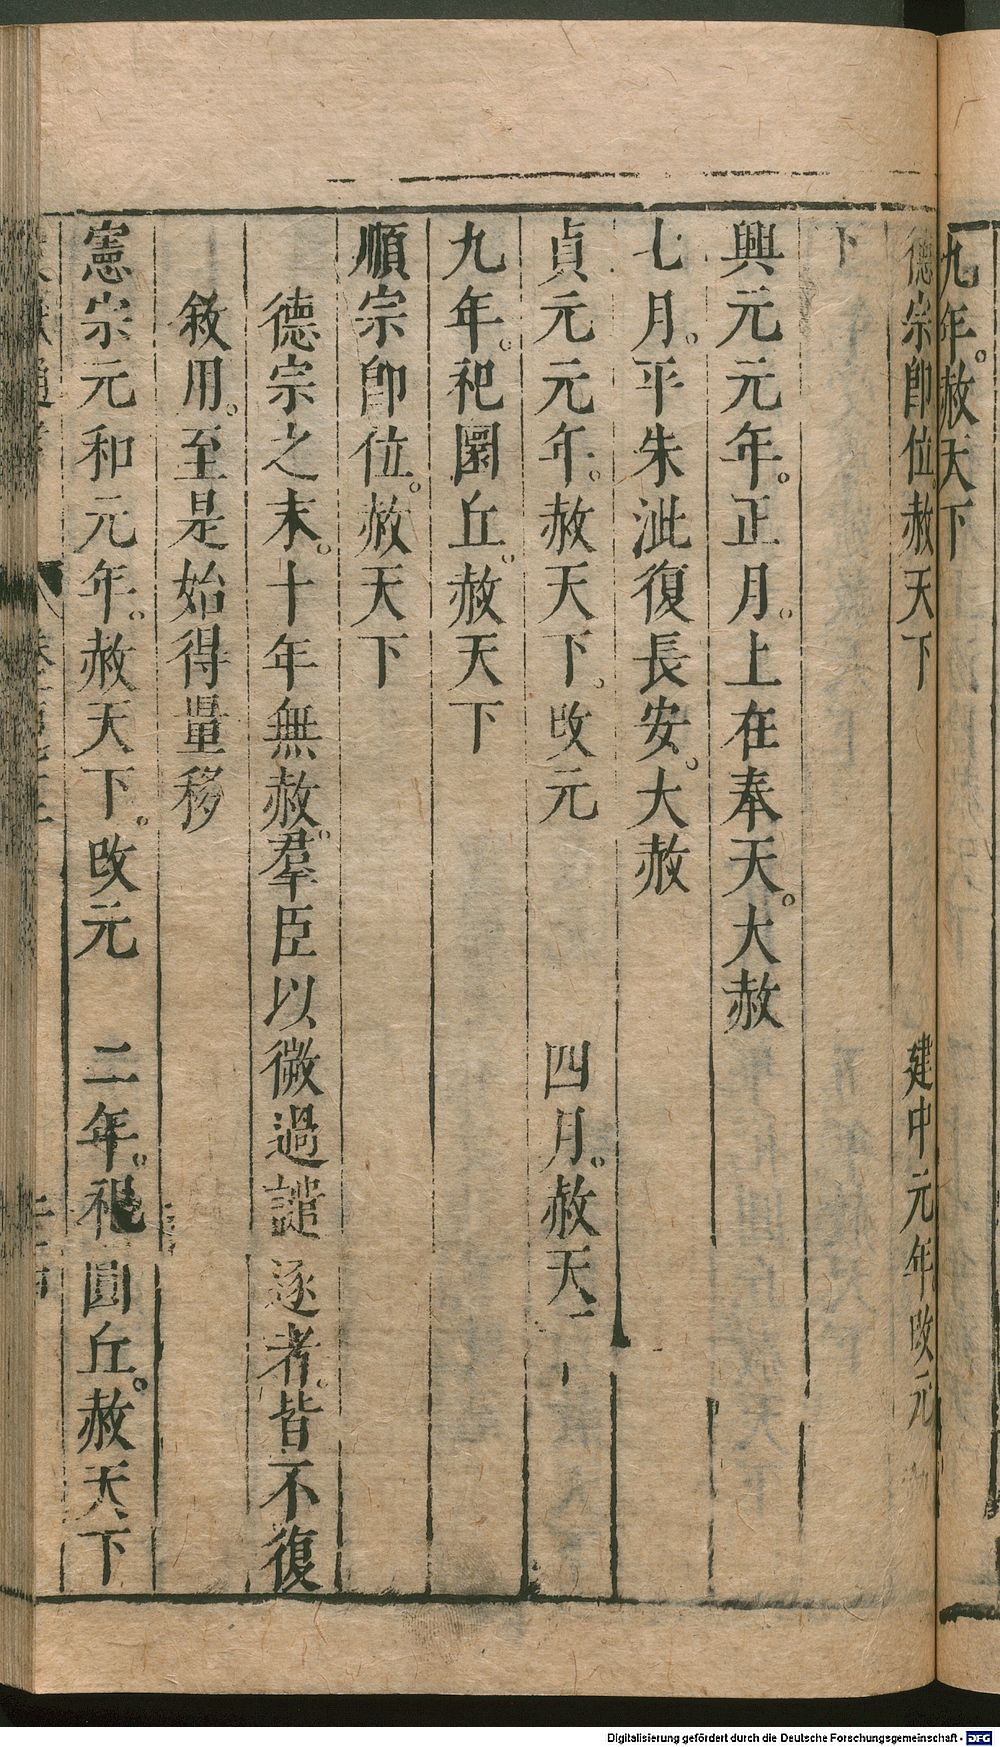 九年。赦天下
德宗卽位赦天下　建中元年改元
下
興元元年。正月。上在奉天。大赦
七月。平朱泚復長安。大赦
貞元元年。赦天下。改元　四月。赦天
九年。祀圜丘。赦天下
順宗卽位。赦天下
德宗之末。十年無赦。羣臣以微過譴逐者。皆不復
敘用。至是始得量移
憲宗元和元年。赦天下。改元　二年。祀圓丘。赦天下
Digitalisierung gefördert durch die Deutsche Forschungsgemeinschaft - DFG